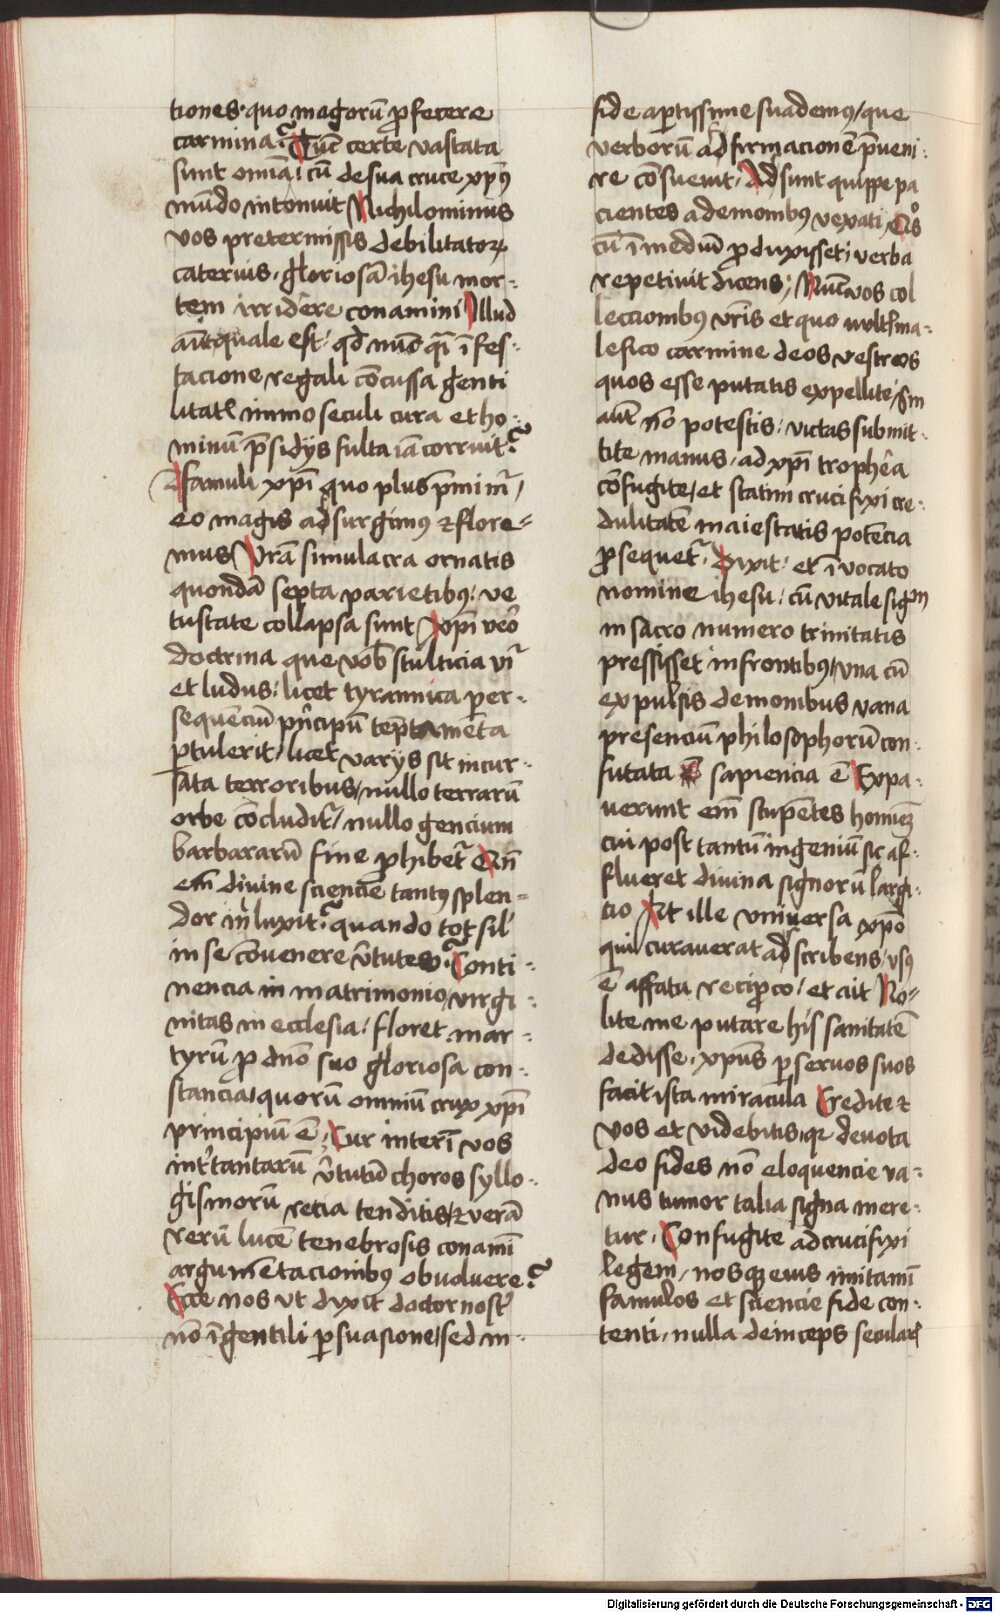 tiones· quo magorū ꝓfecere
carmina? Tūc certe vastata
sunt omīa· cū de sua cruce xp̄s
mūdo intonuit Nichilominus
vos pretermissis debilitatoꝝ
cateruis· gloriosā ihesu mor-
tem irridere conamini Illud
aūt quale est· qd nūc q̄i ī fes-
tacione regali cōcussa genti
litatꝭ immo seculi cura et ho-
minū p̄sidijs fulta iā corruit?
famuli xp̄i quo plus p̄mim̄r/
eo magis adsurgimꝰ ⁊ flore-
mus Vr̄a simulacra ornatis
quondā septa parietibꝰ· ve
tustate collapsa sunt xp̄i vero
doctrina que vob stulticia vr̄
et ludus· licet tyrannica per-
sequenciū pn̄cipū teptamēta
ꝑtulerit· licet varijs sit incur-
sata terroribus/ nullo terrarū
orbe cōcludit̄r/ nullo gencium
barbararū fine ꝓhibet̄ Qn̄
em̄ diuine sciencie tantꝰ splen-
dor in̄luxit? quando tot sil̄
in se cōuenere v̄tutes? Conti-
nencia in matrimonio/ virgi-
nitas in ecclesia/ floret mar-
tyrū ꝓ dn̄o suo gloriosa con-
stancia/ quorū omniū crux xp̄i
principiū ē· Cur interī vos
int̓ tantarū v̄tutū choros syllo-
gismorū retia tenditis/ ⁊ verā
rerū lucē tenebrosis conamī
argumētacionibꝰ obuoluere?
Ecce nos vt dixit doctor nost̓
nō ī gentili ꝑsuasione/ sed in
fide aꝑtissime suademꝰ/ que
verborū adfirmacionē p̄ueni-
re cōsueuit· Adsunt quippe pa
cientes a demonibꝰ vexati Qͦs
cū ī mediū ꝓduxisset/ verba
repetiuit dicens; Nunc vos col
leccionibꝰ vr̄is et quo vultꝭ ma-
lefico carmine deos vestros
quos esse putatis expellite/ Sin
aūt nō potestis/ victas submit-
tite manus/ ad xp̄i trophea
cōfugite/ et statim crucifixi cre-
dulitatē maiestatis potēcia
ꝓsequet̄· Dixit· et īuocato
nomine ihesu/ cū vitale signū
in sacro numero trinitatis
pressisset in frontibꝰ/ vna cū
expulsis demonibus vana
presenciū philosophorū con-
futata sapiencia ē Expa-
uerunt em̄ stupētes homiēꝫ
cui post tantū ingeniū sic af-
flueret diuina signorū largi-
cio At ille vniuersa xp̄o
qui curauerat adscribens/ vsꝰ
ē affatu reciꝓco/ et ait No-
lite me putare his sanitatē
dedisse· xp̄us ꝑ seruos suos
facit ista miracula Credite ⁊
vos et videbitis/ qꝛ deuota
deo fides nō eloquencie va-
nus tumor talia signa mere-
tur· Confugite ad crucifixi
legem/ nosqꝫ eius imitamī
famulos et sciencie fide con-
tenti/ nulla deinceps seculari
Digitalisierung gefördert durch die Deutsche Forschungsgemeinschaft - DFG